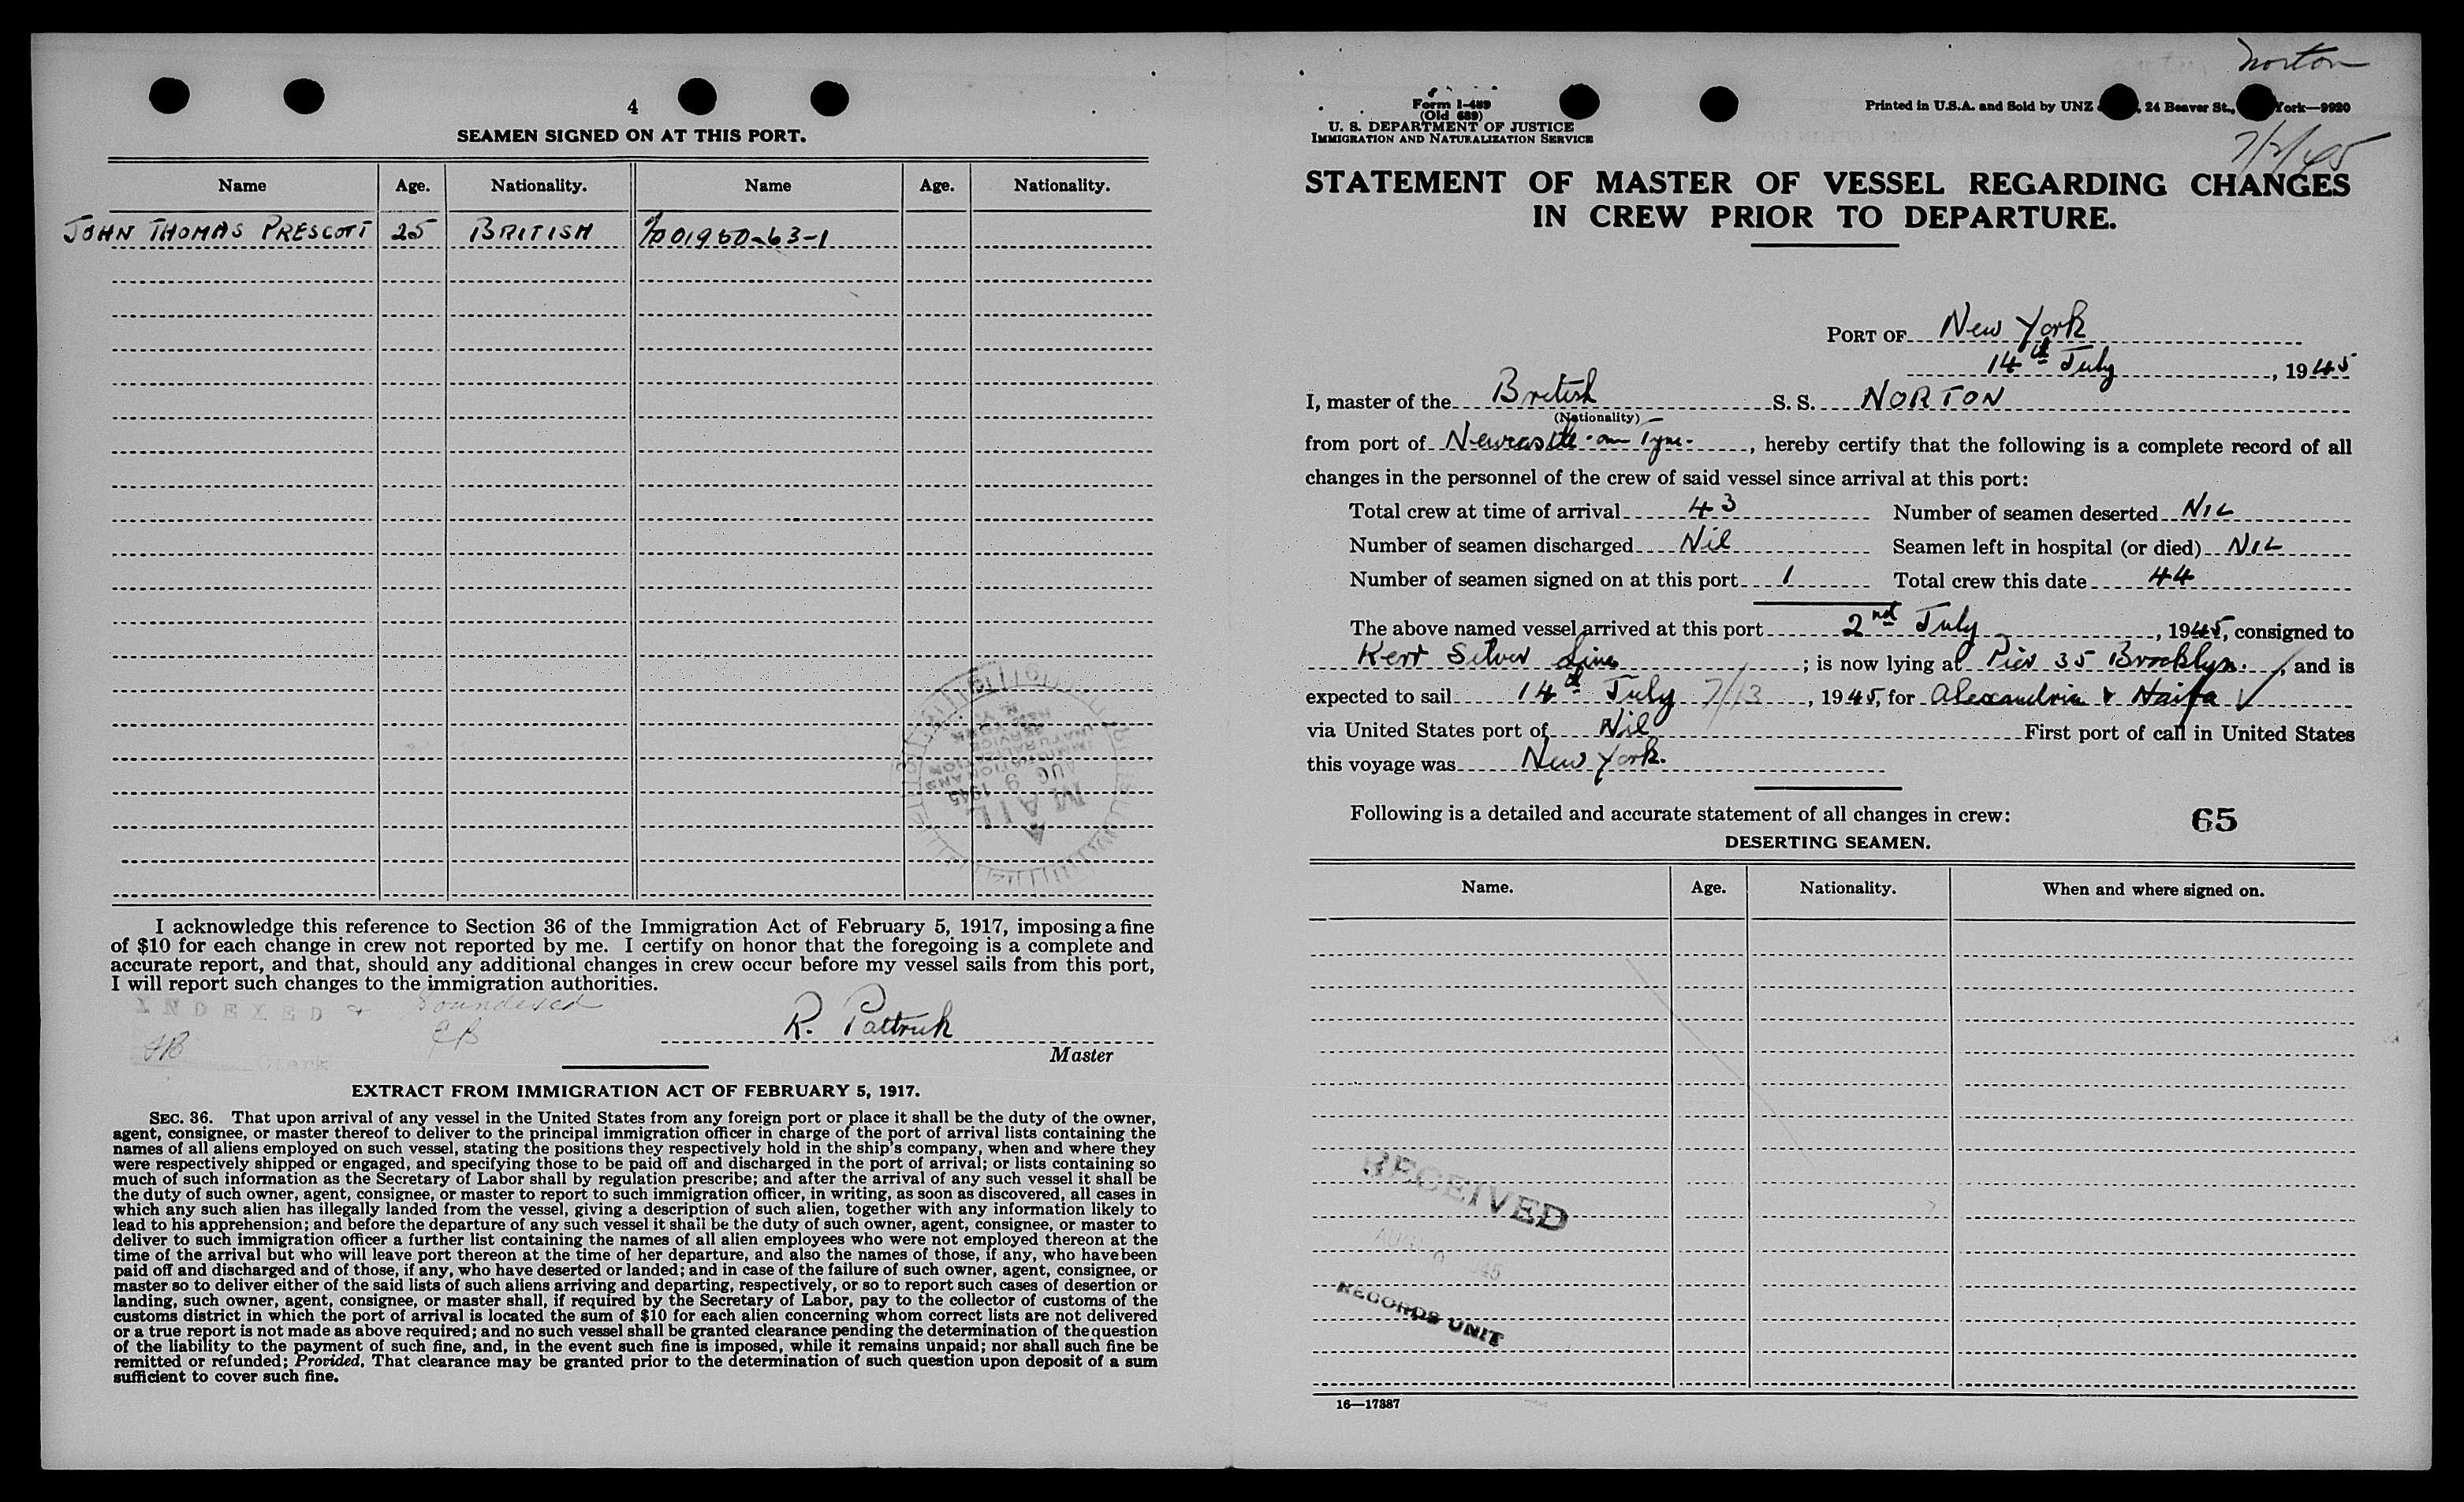 4
SEAMEN SIGNED ON AT THIS PORT.
Name Age. Nationality. Name Age. Nationality.
JOHN THOMAS PRESCOTT 25 BRITISH
I acknowledge this reference to Section 36 of the Immigration Act of February 5, 1917, imposing a fine
of $10 for each change in crew not reported by me. I certify on honor that the foregoing is a complete and
accurate report, and that, should any additional changes in crew occur before my vessel sails from this port,
I will report such changes to the immigration authorities.
INDEXED & Soundexed
Clerk
R.
Master
EXTRACT FROM IMMIGRATION ACT OF FEBRUARY 5, 1917.
SEC. 36. That upon arrival of any vessel in the United States from any foreign port or place it shall be the duty of the owner,
agent, consignee, or master thereof to deliver to the principal immigration officer in charge of the port of arrival lists containing the
names of all aliens employed on such vessel, stating the positions they respectively hold in the ship's company, when and where they
were respectively shipped or engaged, and specifying those to be paid off and discharged in the port of arrival; or lists containing so
much of such information as the Secretary of Labor shall by regulation prescribe; and after the arrival of any such vessel it shall be
the duty of such owner, agent, consignee, or master to report to such immigration officer, in writing, as soon as discovered, all cases in
which any such alien has illegally landed from the vessel, giving a description of such alien, together with any information likely to
lead to his apprehension; and before the departure of any such vessel it shall be the duty of such owner, agent, consignee, or master to
deliver to such immigration officer a further list containing the names of all alien employees who were not employed thereon at the
time of the arrival but who will leave port thereon at the time of her departure, and also the names of those, if any, who have been
paid off and discharged and of those, if any, who have deserted or landed; and in case of the failure of such owner, agent, consignee, or
master so to deliver either of the said lists of such aliens arriving and departing, respectively, or so to report such cases of desertion or
landing, such owner, agent, consignee, or master shall, if required by the Secretary of Labor, pay to the collector of customs of the
customs district in which the port of arrival is located the sum of $10 for each alien concerning whom correct lists are not delivered
or a true report is not made as above required; and no such vessel shall be granted clearance pending the determination of the question
of the liability to the payment of such fine, and, in the event such fine is imposed, while it remains unpaid; nor shall such fine be
remitted or refunded; Provided, That clearance may be granted prior to the determination of such question upon deposit of a sum
sufficient to cover such fine.
MAIL
AUG 9 1945
IMMIGRATION AND
NATURALIZATION
SERVICE
NEW YORK
N. Y.
Norton
Form I-489
(Old 689)
U. S. DEPARTMENT OF JUSTICE
IMMIGRATION AND NATURALIZATION SERVICE
Printed in U.S.A. and Sold by UNZ , 24 Beaver St., York—9920
7/2/45
STATEMENT OF MASTER OF VESSEL REGARDING CHANGES
IN CREW PRIOR TO DEPARTURE.
PORT OF New York
14th July, 1945
I, master of the British S. S. NORTON
(Nationality)
from port of Newcastle-on-Tyne, hereby certify that the following is a complete record of all
changes in the personnel of the crew of said vessel since arrival at this port:
Total crew at time of arrival 43 Number of seamen deserted NIL
Number of seamen discharged Nil Seamen left in hospital (or died) NIL
Number of seamen signed on at this port 1 Total crew this date 44
The above named vessel arrived at this port 2nd July, 1945, consigned to
Kerr Silver Line; is now lying at Pier 35 Brooklyn., and is
expected to sail 14th July 7/13, 1945, for Alexandria & Haifa
via United States port of Nil First port of call in United States
this voyage was New York.
Following is a detailed and accurate statement of all changes in crew: 65
DESERTING SEAMEN.
Name. Age. Nationality. When and where signed on.
RECEIVED
RECORDS UNIT
16—17387